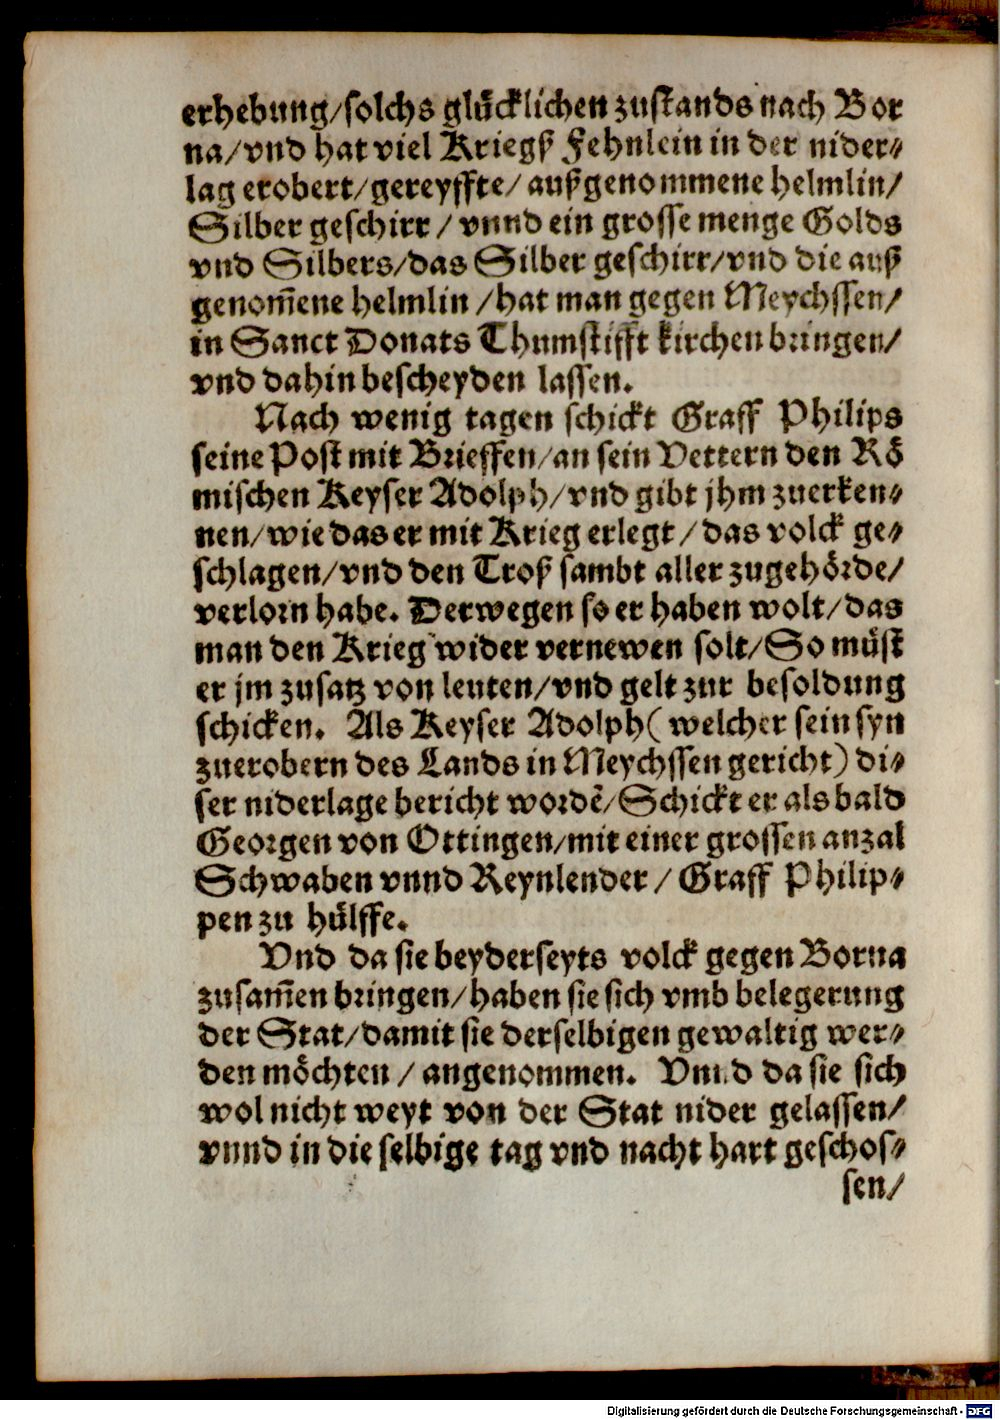 erhebung/solchs glücklichen zustands nach Bor
na/vnd hat viel Kriegß Fehnlein in der nider⸗
lag erobert/gereyffte/außgenommene helmlin/
Silber geschirr/vnnd ein grosse menge Golds
vnd Silbers/das Silber geschirr/vnd die auß
genom̃ene helmlin/hat man gegen Meychssen/
in Sanct Donats Thumstifft kirchen bringen/
vnd dahin bescheyden lassen.
Nach wenig tagen schickt Graff Philips
seine Post mit Brieffen/an sein Vettern den Rö
mischen Keyser Adolph/vnd gibt jhm zuerken⸗
nen/wie das er mit Krieg erlegt/das volck ge⸗
schlagen/vnd den Troß sambt aller zugehörde/
verlorn habe. Derwegen so er haben wolt/das
man den Krieg wider vernewen solt/So müst
er jm zusatz von leuten/vnd gelt zur besoldung
schicken. Als Keyser Adolph(welcher sein syn
zuerobern des Lands in Meychssen gericht) di⸗
ser niderlage bericht wordẽ/Schickt er als bald
Georgen von Ottingen/mit einer grossen anzal
Schwaben vnnd Reynlender/Graff Philip⸗
pen zu hülffe.
Vnd da sie beyderseyts volck gegen Borna
zusam̃en bringen/haben sie sich vmb belegerung
der Stat/damit sie derselbigen gewaltig wer⸗
den möchten/angenommen. Vnnd da sie sich
wol nicht weyt von der Stat nider gelassen/
vnnd in die selbige tag vnd nacht hart geschos⸗
sen/
Digitalisierung gefördert durch die Deutsche Forschungsgemeinschaft - DFG